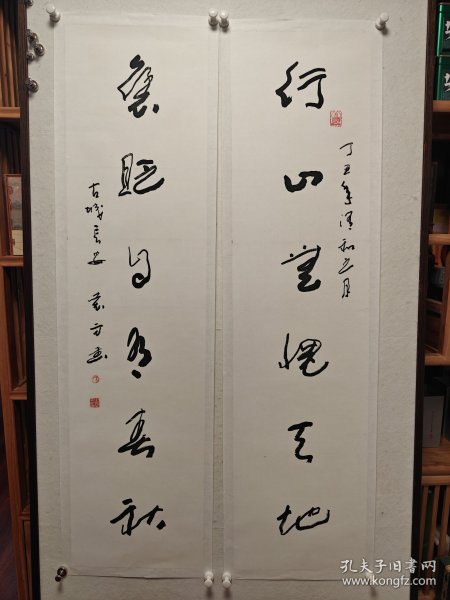 行止无愧天地
丁丑年清和之月
褒贬自有春秋
古城长安
孔夫子旧书网
www.kongfz.com